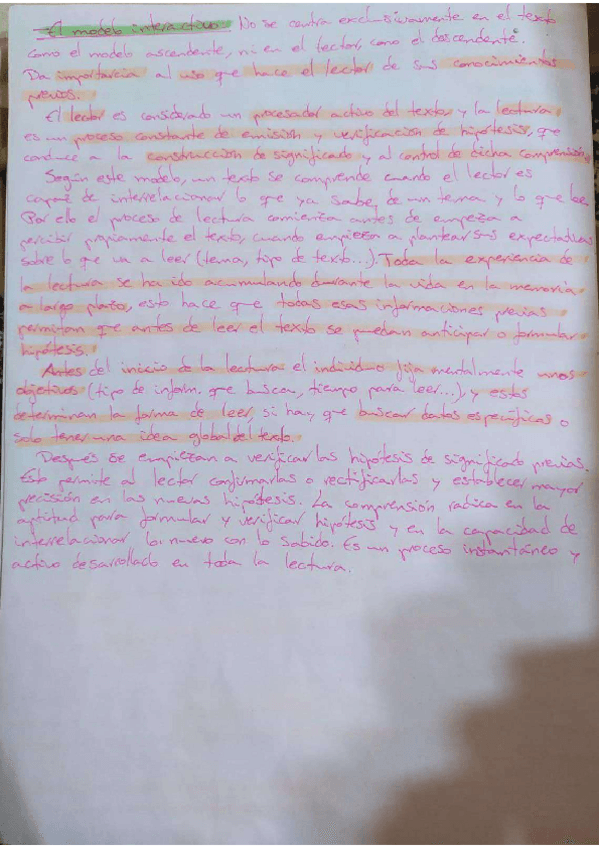 El modelo interactivo: No se centra exclusivamente en el texto
como el modelo ascendente, ni en el lector, como el descendente.
Da importancia al uso que hace el lector de sus conocimientos
previos.
El lector es considerado un procesador activo del texto, y la lectura
es un proceso constante de emisión y verificación de hipótesis, que
conduce a la construcción de significado y al control de dicha comprensión.
Según este modelo, un texto se comprende cuando el lector es
capaz de interrelacionar lo que ya sabe, de un tema y lo que lee.
Por ello el proceso de lectura comienza antes de empezar a
percibir propiamente el texto, cuando empieza a plantear sus expectativas
sobre lo que va a leer (tema, tipo de texto...). Toda la experiencia de
la lectura se ha ido acumulando durante la vida en la memoria
a largo plazo, esto hace que todas esas informaciones previas
permitan que antes de leer el texto se puedan anticipar o formular
hipótesis.
Antes del inicio de la lectura el individuo fija mentalmente unos
objetivos (tipo de inform. que busca, tiempo para leer...), y estos
determinan la forma de leer, si hay que buscar datos específicos o
solo tener una idea global del texto.
Después se empiezan a verificar las hipótesis de significado previas.
Esto permite al lector confirmarlas o rectificarlas y establecer mayor
precisión en las nuevas hipótesis. La comprensión radica en la
aptitud para formular y verificar hipótesis y en la capacidad de
interrelacionar lo nuevo con lo sabido. Es un proceso instantáneo y
activo desarrollado en toda la lectura.